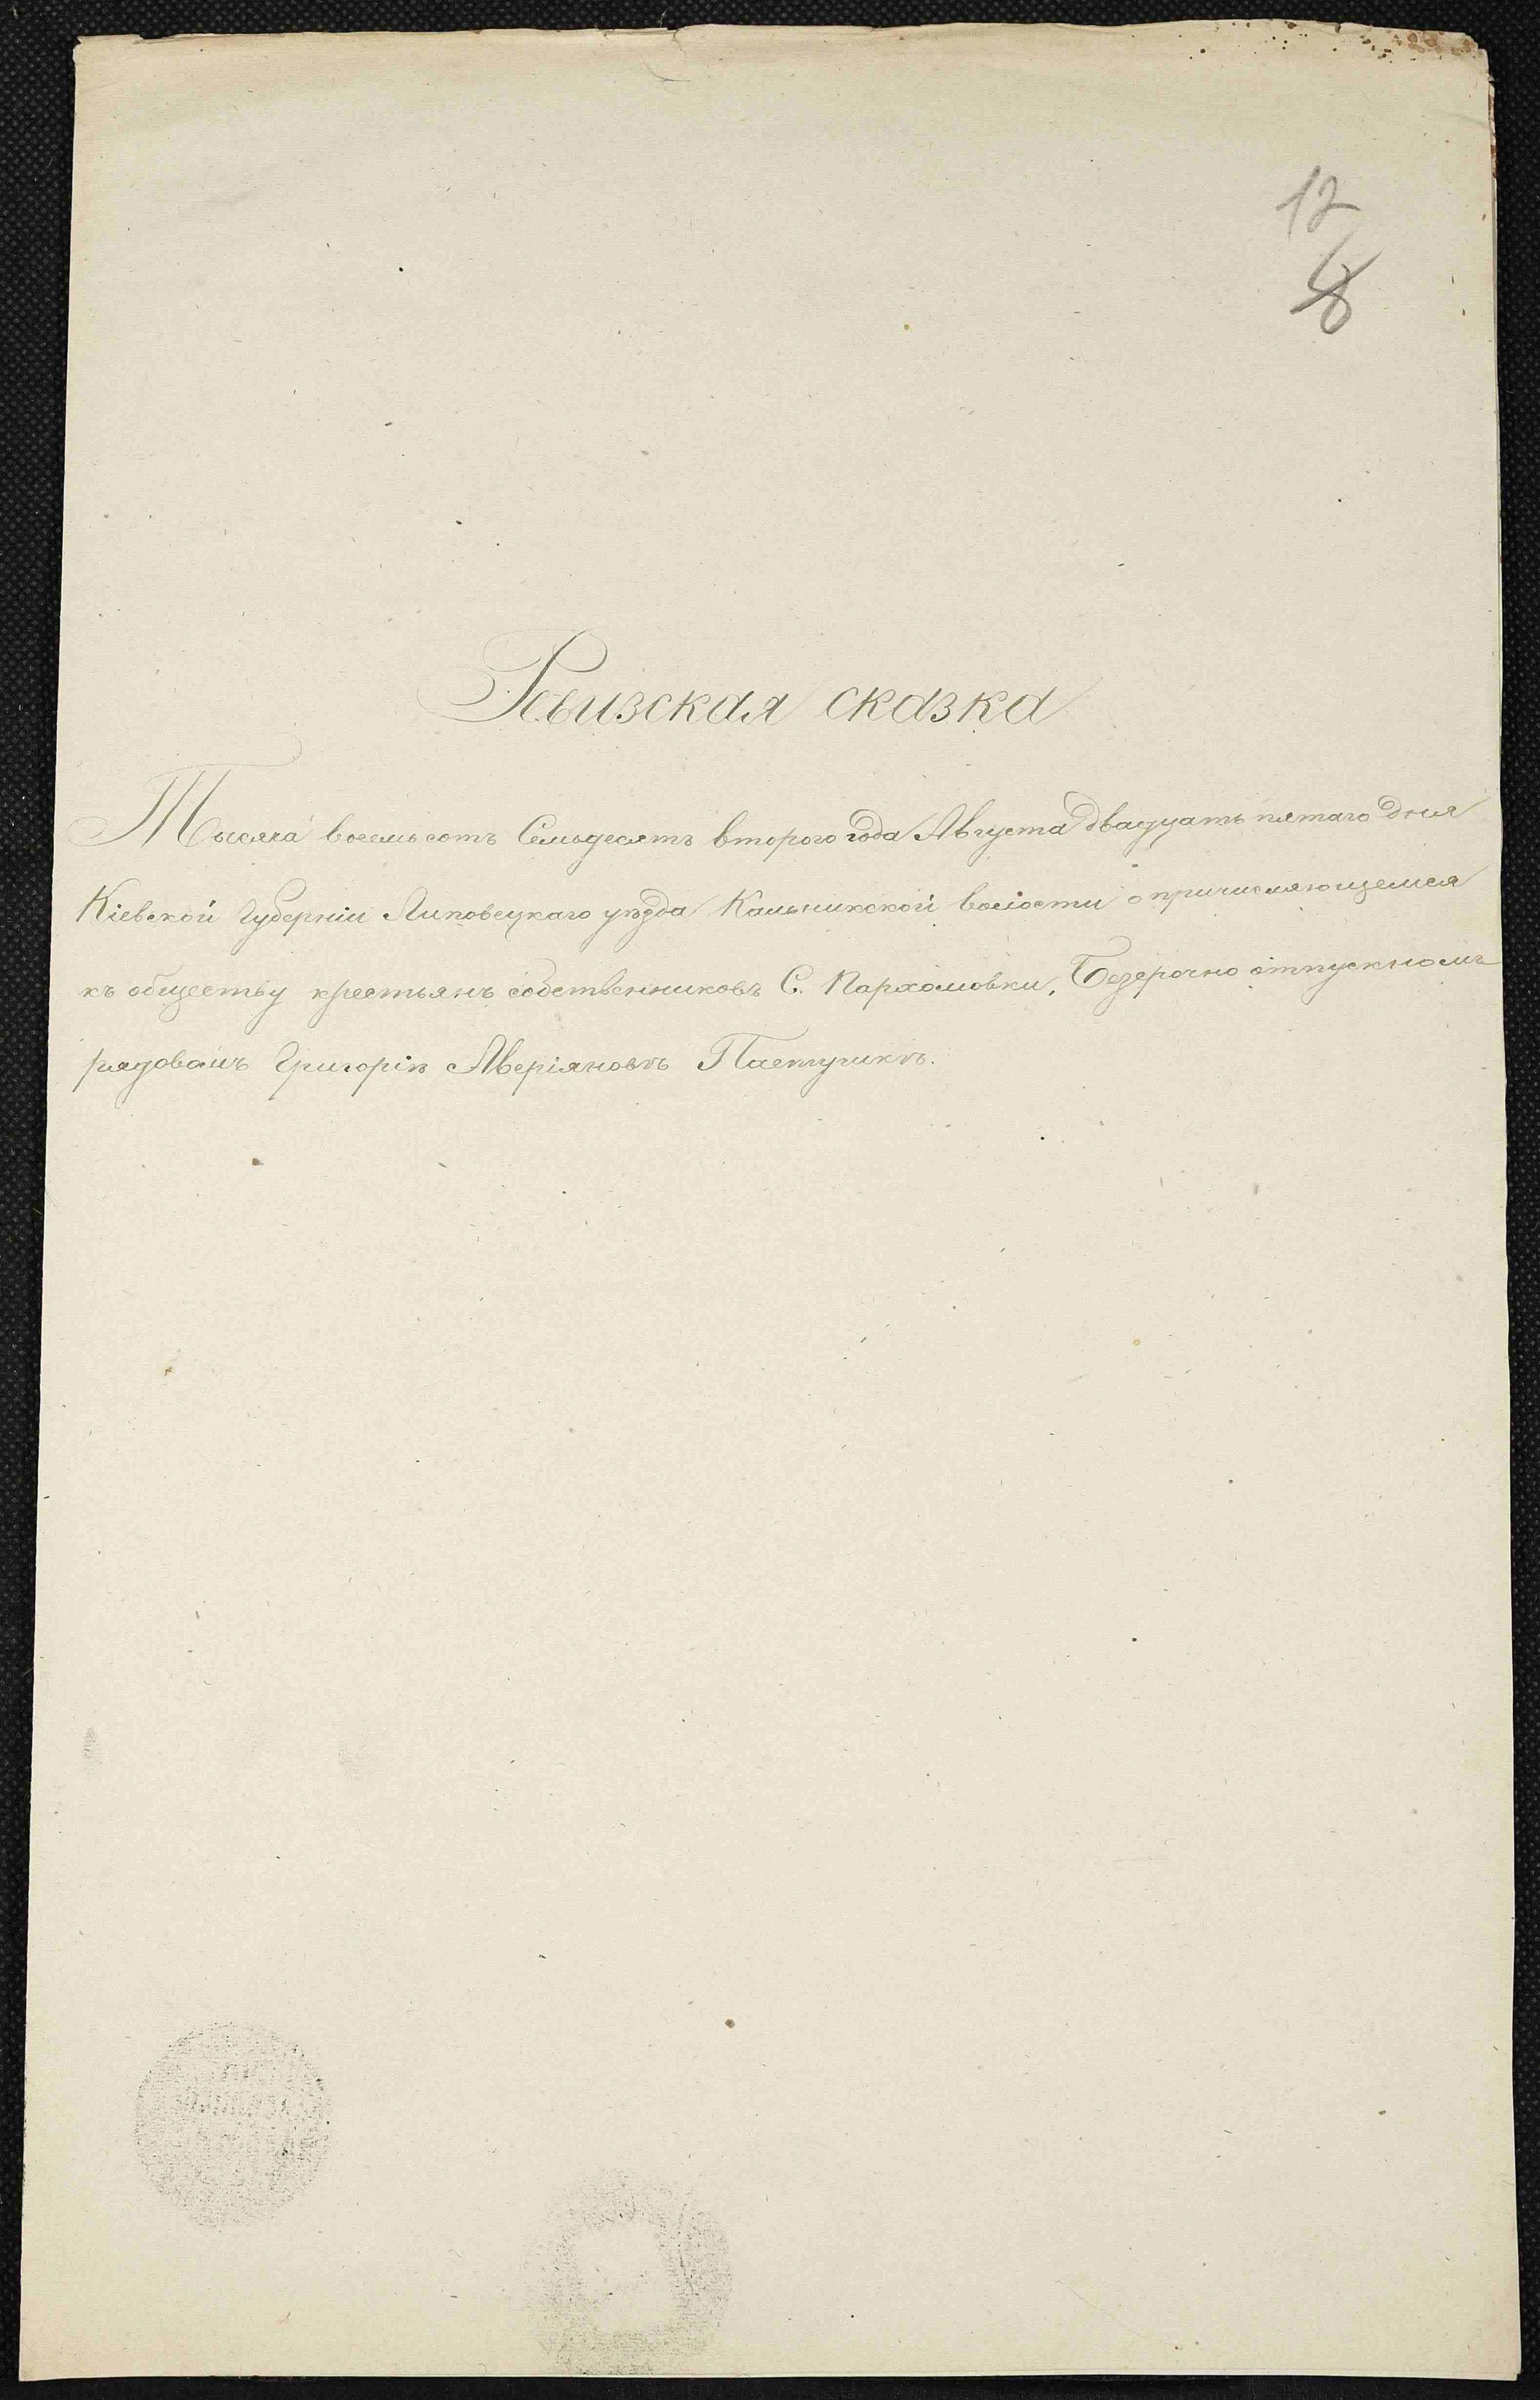 12
Ревизская сказка
Тысяча восемьсотъ Семьдесятъ втораго года Августа двадцать пятаго дня
Кіевской Губерніи Липовецкаго уѣзда Кальникской волости о причисляющемся
къ обществу крестьянъ собственниковъ С. Пархомовки, Безсрочно отпускномъ
рядовомъ Григоріѣ Аверіяновѣ Пастушкѣ.